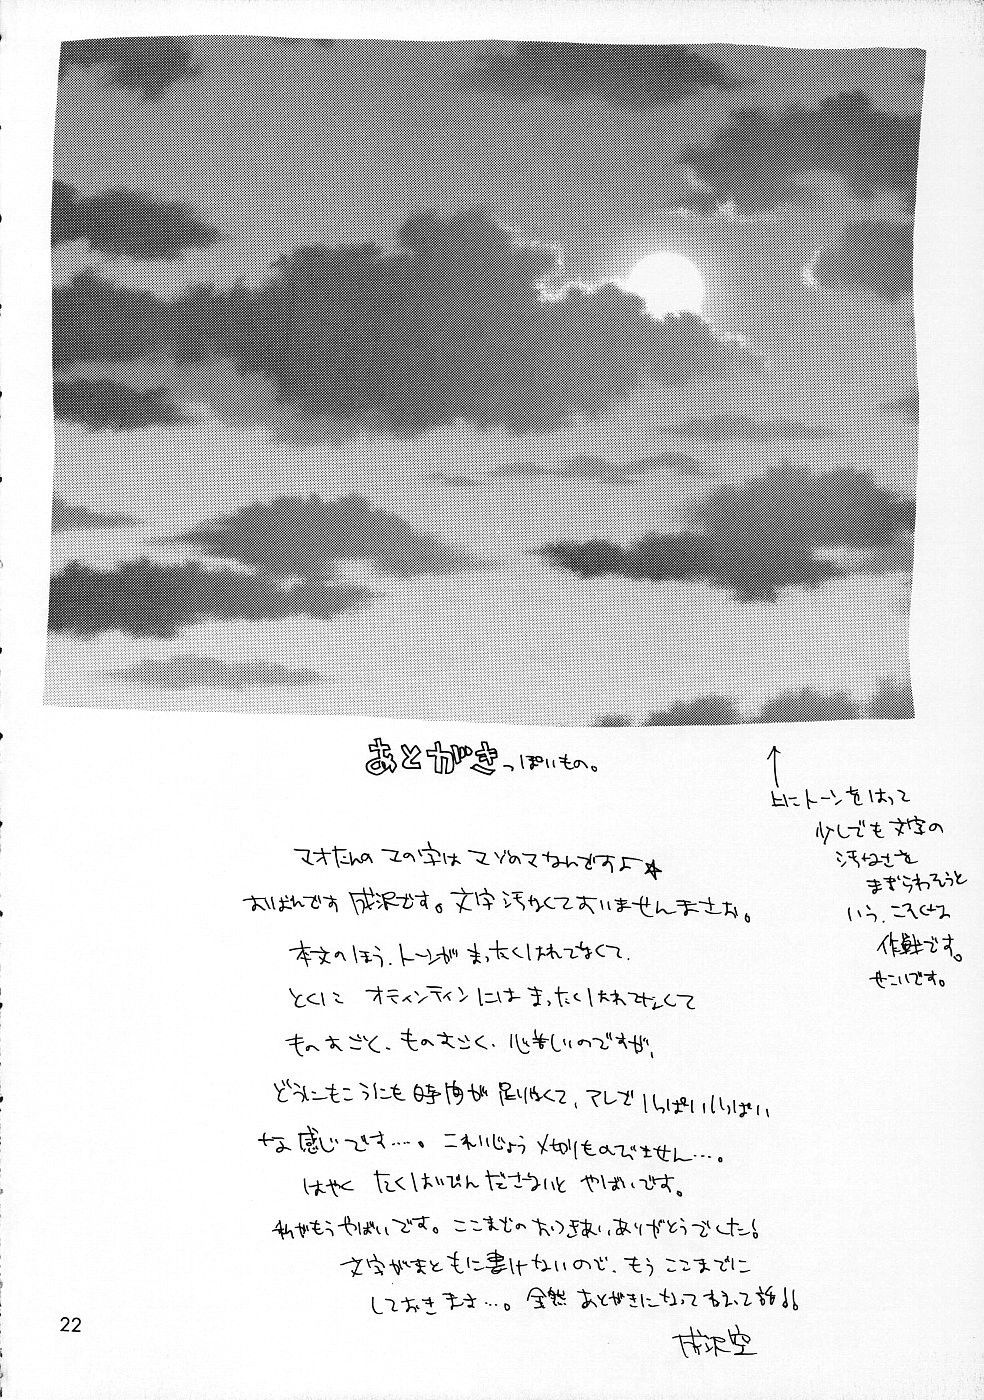 あとがきっぽいもの。
↑
上にトーンをはって
少しでも文字の
汚なさを
まぎらわそうと
いう、こそくな
作戦です。
せこいです。
マオたんのマの字はマゾのマなんですよ☆
おばんです成沢です。文字汚なくてすいませんまさお。
本文のほう、トーンがまったくはれてなくて、
とくに オティンティンにはまったくはれてなくて
ものすごく、ものすごく、心苦しいのですが、
どうにもこうにも時間が足りなくて、アレでいっぱいいっぱい
な感じです…。これいじょう〆切りものびません…。
はやく たくはいびんださないと やばいです。
私がもうやばいです。ここまでのおつきあいありがとうでした!
文字がまともに書けないので、もうここまでに
しておきます…。全然あとがきになってねえって話!!
成沢空
22